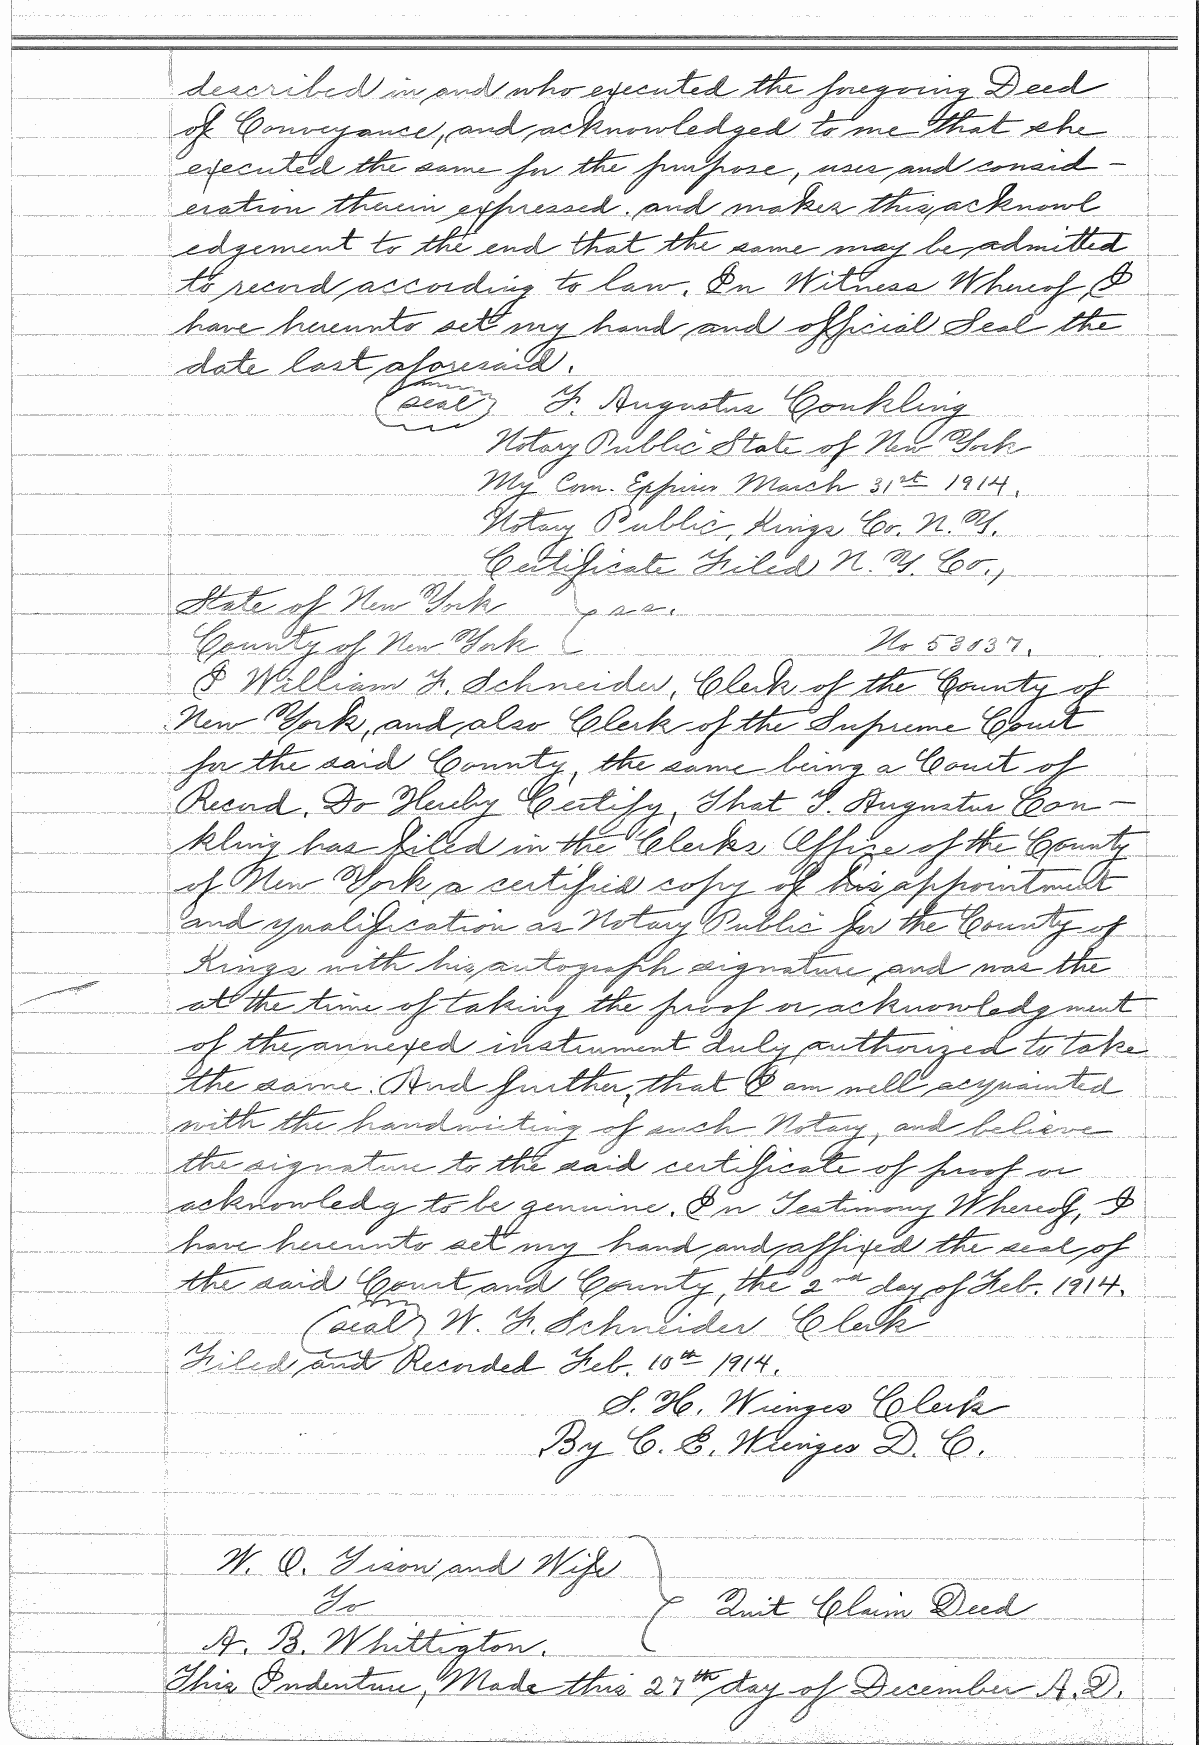 described in and who executed the foregoing Deed
of Conveyance, and acknowledged to me that she
executed the same for the purpose, uses and consid-
eration therein expressed. and makes this acknowl
edgement to the end that the same may be admitted
to record according to law. In Witness Whereof I
have hereunto set my hand and official Seal the
date last aforesaid.
(seal) F. Augustus Conkling
Notary Public State of New York
My Com. Expires March 31st 1914.
Notary Public, Kings Co. N. Y.
Certificate Filed N. Y. Co.,
State of New York } ss.
County of New York No 53037.
I William F. Schneider, Clerk of the County of
New York, and also Clerk of the Supreme Court
for the said County, the same being a Court of
Record. Do Hereby Certify, That F. Augustus Con-
kling has filed in the Clerks Office of the County
of New York a certified copy of his appointment
and qualification as Notary Public for the County of
Kings with his autograph signature, and was the
at the time of taking the proof or acknowledgment
of the annexed instrument duly authorized to take
the same. And further, that I am well acquainted
with the handwriting of such Notary, and believe
the signature to the said certificate of proof or
acknowledg to be genuine. In Testimony Whereof, I
have hereunto set my hand and affixed the seal of
the said Court and County, the 2nd day of Feb. 1914.
(seal) W. F. Schneider Clerk
Filed and Recorded Feb. 10th 1914.
S. H. Wienges Clerk
By C. E. Wienges D. C.
W. O. Tison and Wife
To } Quit Claim Deed
A. B. Whittigton.
This Indenture, Made this 27th day of December A.D.